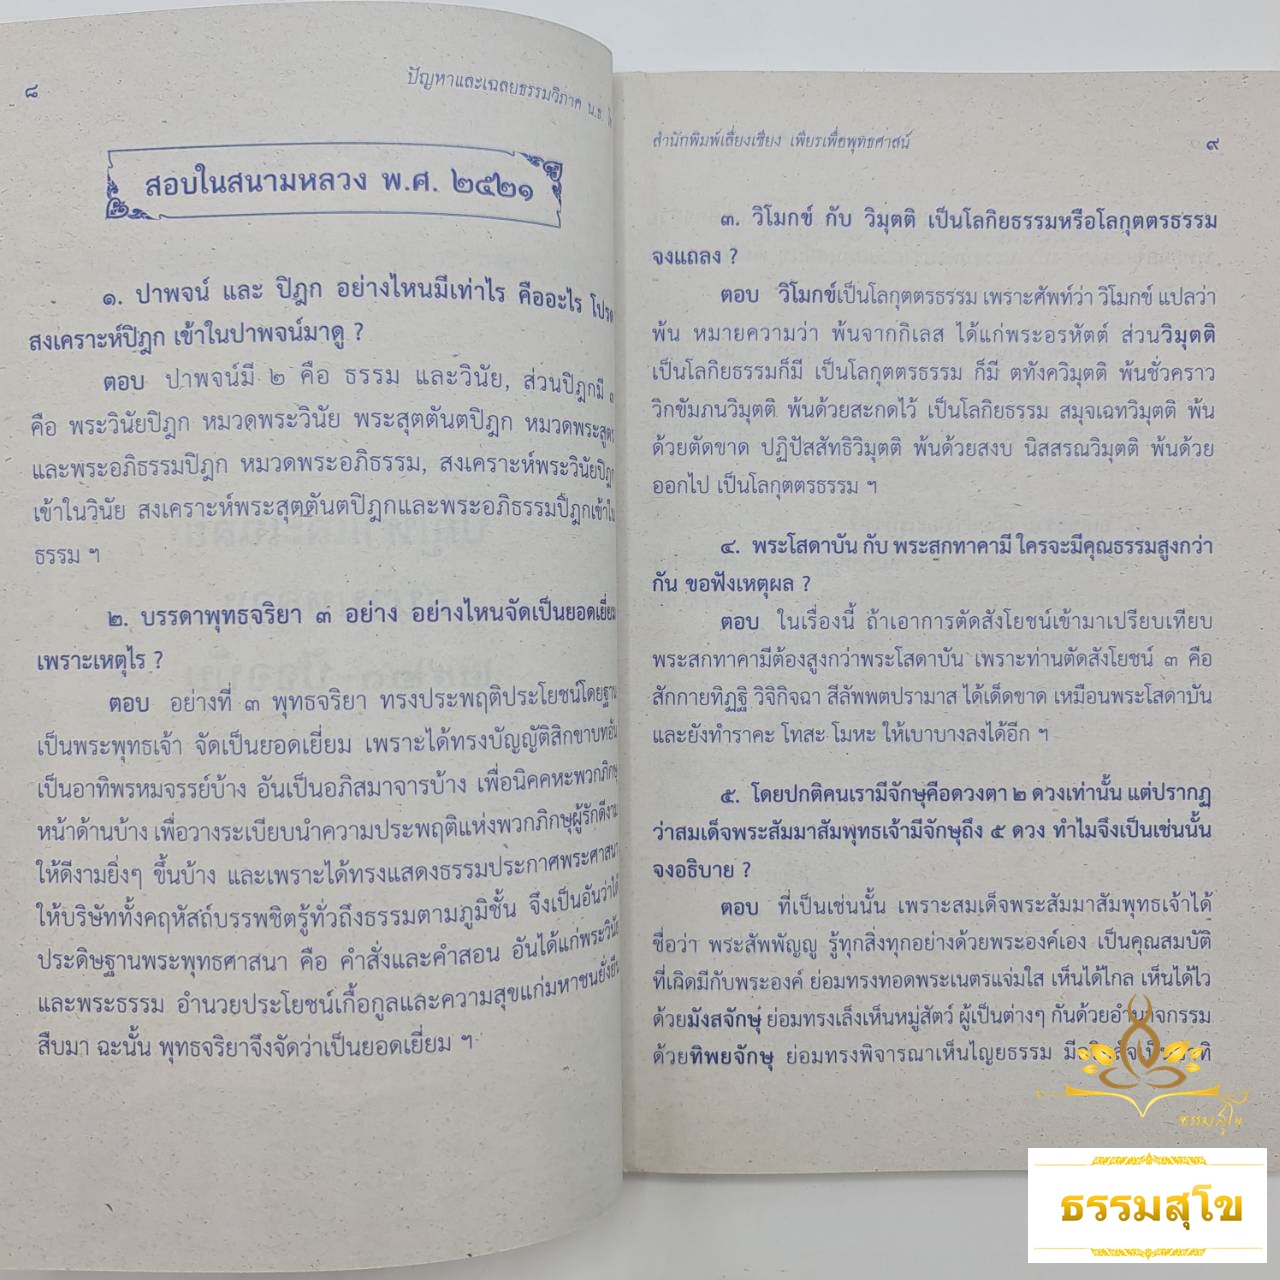 ๘
ปัญหาและเฉลยธรรมวิภาค น.ธ.
สอบในสนามหลวง พ.ศ. ๒๕๒๑
๑. ปาพจน์ และ ปิฎก อย่างไหนมีเท่าไร คืออะไร โปรด
สงเคราะห์ปิฎก เข้าในปาพจน์มาดู ?
ตอบ ปาพจน์มี ๒ คือ ธรรม และวินัย, ส่วนปิฎกมี ๓
คือ พระวินัยปิฎก หมวดพระวินัย พระสุตตันตปิฎก หมวดพระสูตร
และพระอภิธรรมปิฎก หมวดพระอภิธรรม, สงเคราะห์พระวินัยปิฎก
เข้าในวินัย สงเคราะห์พระสุตตันตปิฎกและพระอภิธรรมปิฎกเข้าใน
ธรรม ฯ
๒. บรรดาพุทธจริยา ๓ อย่าง อย่างไหนจัดเป็นยอดเยี่ยม
เพราะเหตุไร ?
ตอบ อย่างที่ ๓ พุทธจริยา ทรงประพฤติประโยชน์โดยฐาน
เป็นพระพุทธเจ้า จัดเป็นยอดเยี่ยม เพราะได้ทรงบัญญัติสิกขาบทอัน
เป็นอาทิพรหมจรรย์บ้าง อันเป็นอภิสมาจารบ้าง เพื่อนิคคหะพวกภิกษุ
หน้าด้านบ้าง เพื่อวางระเบียบนำความประพฤติแห่งพวกภิกษุผู้รักดีงาม
ให้ดีงามยิ่งๆ ขึ้นบ้าง และเพราะได้ทรงแสดงธรรมประกาศพระศาสนา
ให้บริษัททั้งคฤหัสถ์บรรพชิตรู้ทั่วถึงธรรมตามภูมิชั้น จึงเป็นอันว่าได้
ประดิษฐานพระพุทธศาสนา คือ คำสั่งและคำสอน อันได้แก่พระวินัย
และพระธรรม อำนวยประโยชน์เกื้อกูลและความสุขแก่มหาชนยั่งยืน
สืบมา ฉะนั้น พุทธจริยาจึงจัดว่าเป็นยอดเยี่ยม ฯ
สำนักพิมพ์เลี่ยงเชียง เพียรเพื่อพุทธศาสน์
๙
๓. วิโมกข์ กับ วิมุตติ เป็นโลกิยธรรมหรือโลกุตตรธรรม
จงแถลง ?
ตอบ วิโมกข์เป็นโลกุตตรธรรม เพราะศัพท์ว่า วิโมกข์ แปลว่า
พ้น หมายความว่า พ้นจากกิเลส ได้แก่พระอรหัตต์ ส่วนวิมุตติ
เป็นโลกิยธรรมก็มี เป็นโลกุตตรธรรม ก็มี ตทังควิมุตติ พ้นชั่วคราว
วิกขัมภนวิมุตติ พ้นด้วยสะกดไว้ เป็นโลกิยธรรม สมุจเฉทวิมุตติ พ้น
ด้วยตัดขาด ปฏิปัสสัทธิวิมุตติ พ้นด้วยสงบ นิสสรณวิมุตติ พ้นด้วย
ออกไป เป็นโลกุตตรธรรม ฯ
๔. พระโสดาบัน กับ พระสกทาคามี ใครจะมีคุณธรรมสูงกว่า
กัน ขอฟังเหตุผล ?
ตอบ ในเรื่องนี้ ถ้าเอาการตัดสังโยชน์เข้ามาเปรียบเทียบ
พระสกทาคามีต้องสูงกว่าพระโสดาบัน เพราะท่านตัดสังโยชน์ ๓ คือ
สักกายทิฏฐิ วิจิกิจฉา สีลัพพตปรามาส ได้เด็ดขาด เหมือนพระโสดาบัน
และยังทำราคะ โทสะ โมหะ ให้เบาบางลงได้อีก ฯ
๕. โดยปกติคนเรามีจักษุคือดวงตา ๒ ดวงเท่านั้น แต่ปรากฏ
ว่าสมเด็จพระสัมมาสัมพุทธเจ้ามีจักษุถึง ๕ ดวง ทำไมจึงเป็นเช่นนั้น
จงอธิบาย ?
ตอบ ที่เป็นเช่นนั้น เพราะสมเด็จพระสัมมาสัมพุทธเจ้าได้
ชื่อว่า พระสัพพัญญู รู้ทุกสิ่งทุกอย่างด้วยพระองค์เอง เป็นคุณสมบัติ
ที่เกิดมีกับพระองค์ ย่อมทรงทอดพระเนตรแจ่มใส เห็นได้ไกล เห็นได้ไว
ด้วยมังสจักษุ ย่อมทรงเล็งเห็นหมู่สัตว์ ผู้เป็นต่างๆ กันด้วยอำนาจกรรม
ด้วยทิพยจักษุ ย่อมทรงพิจารณาเห็นไญยธรรม
ธรรมสุโข
ธรรมสุโข